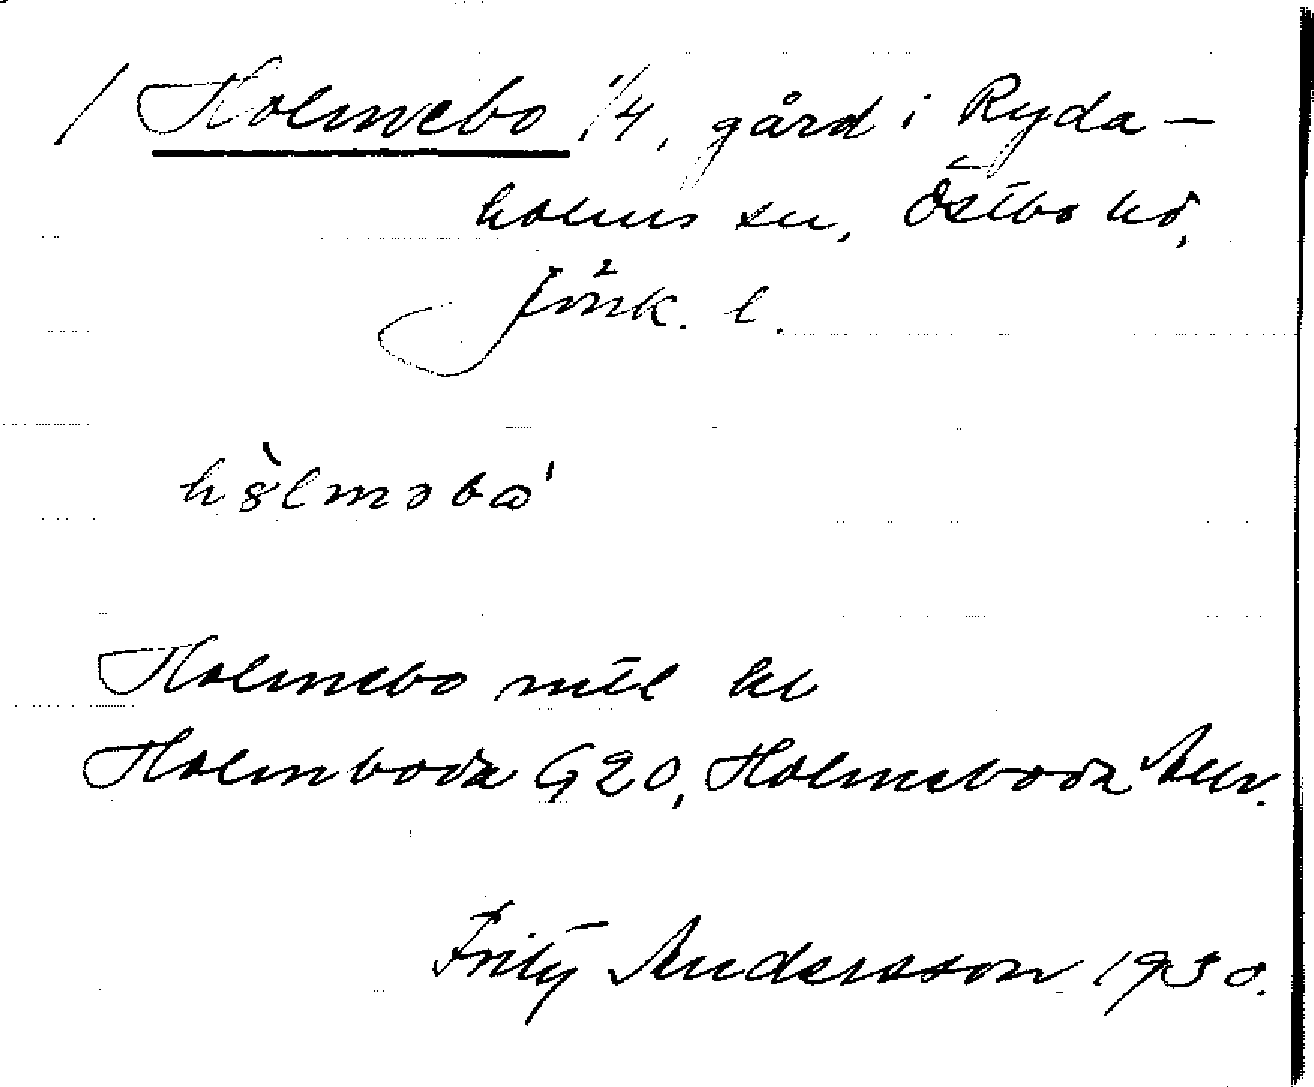 / Holmebo 1/4, gård i Ryda-
holms sn, Östbo hd,
Jönk. l.
Holmebo mtl kl
Holmboda G20, Holmeboda
Fritz Andersson 1930.